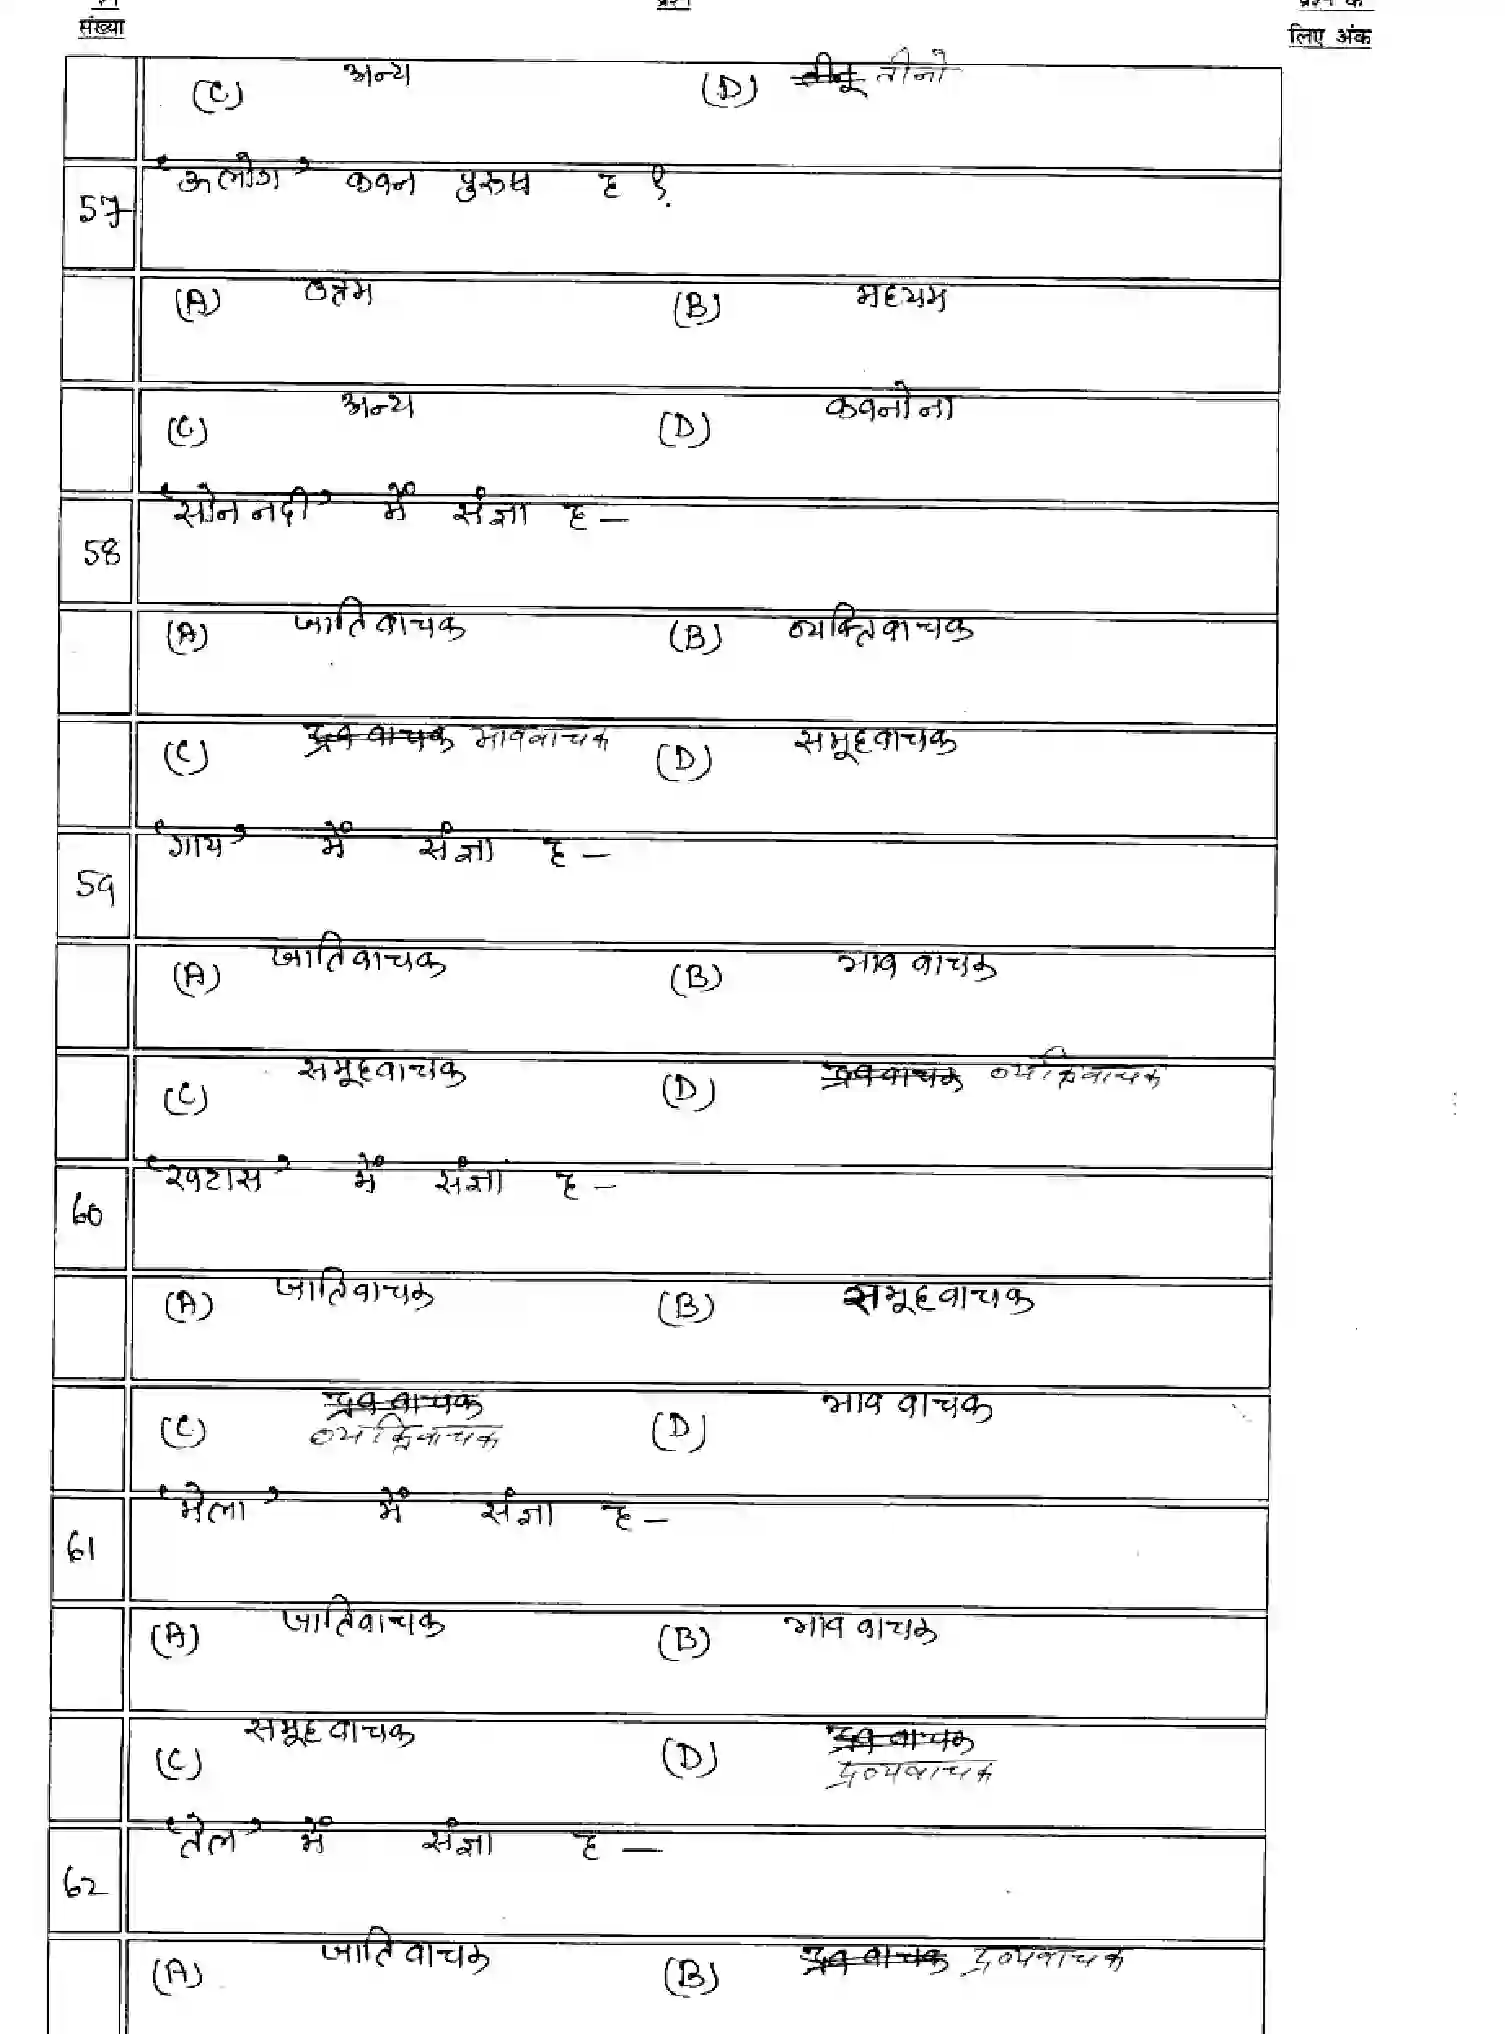 संख्या
लिए अंक
(C) अन्य (D) तीनू तीनो
57 'ऊ लोग' कवन पुरुष ह ?
(A) उत्तम (B) मध्यम
(C) अन्य (D) कवनो ना
58 'सोन नदी' में संज्ञा ह –
(A) जातिवाचक (B) व्यक्तिवाचक
(C) द्रव वाचक भाववाचक (D) समूहवाचक
59 'गाय' में संज्ञा ह –
(A) जातिवाचक (B) भाव वाचक
(C) समूहवाचक (D) द्रववाचक व्यक्तिवाचक
60 'खटास' में संज्ञा ह –
(A) जातिवाचक (B) समूहवाचक
(C) द्रव वाचक (D) भाव वाचक
व्यक्तिवाचक
61 'मेला' में संज्ञा ह –
(A) जातिवाचक (B) भाव वाचक
(C) समूहवाचक (D) द्रव वाचक
द्रव्यवाचक
62 'तेल' में संज्ञा ह –
(A) जातिवाचक (B) द्रव वाचक द्रव्यवाचक